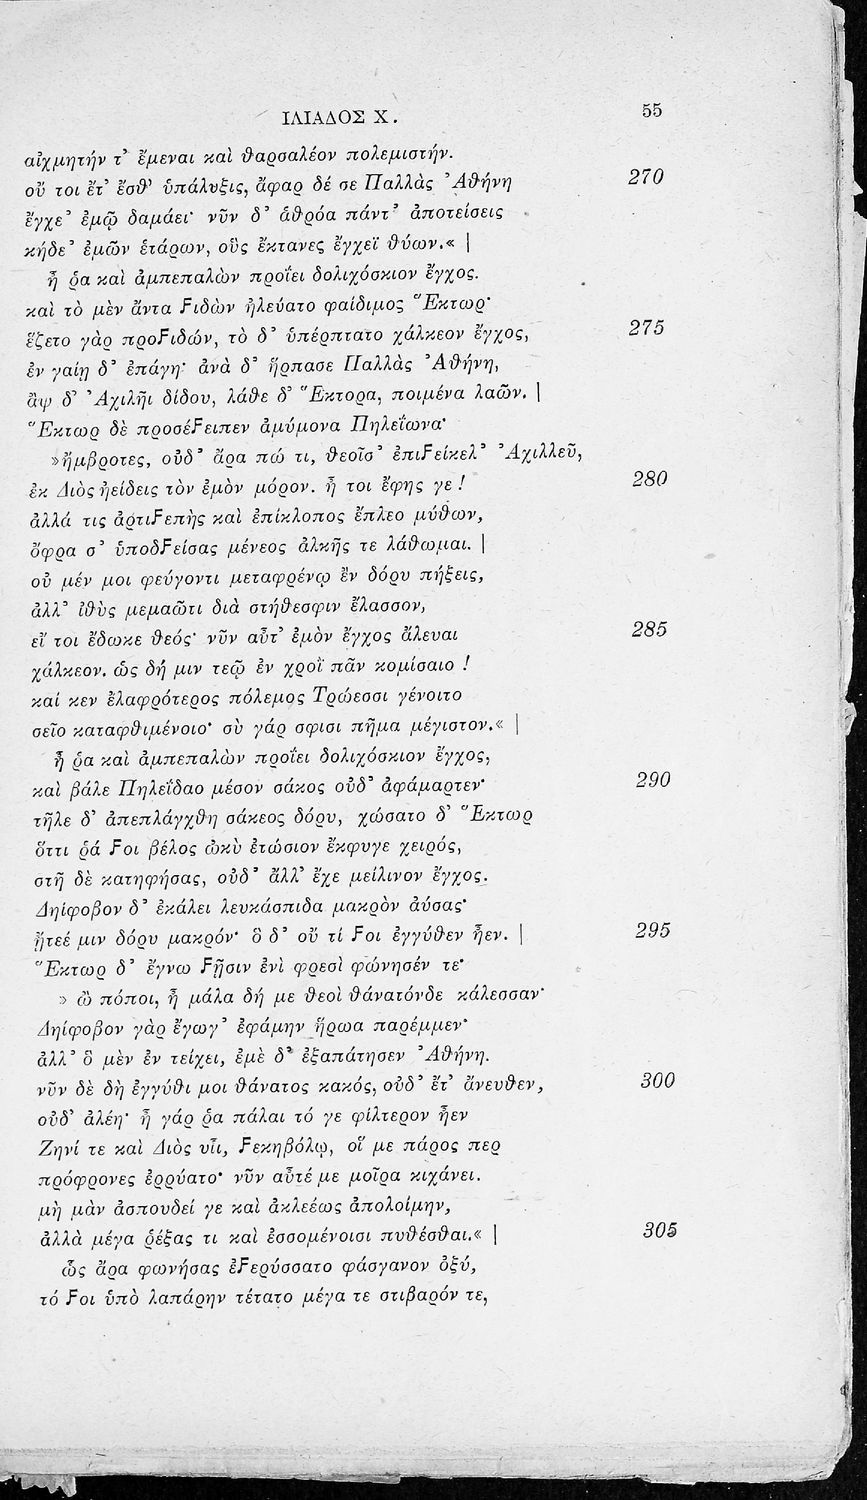 ΙΛΙΑΔΟΣ Χ. 55
αἰχμητήν τ’ ἔμεναι καὶ θαρσαλέον πολεμιστήν.
οὔ τοι ἔτ’ ἔσθ’ ὑπάλυξις, ἄφαρ δέ σε Παλλὰς Ἀθήνη 270
ἔγχε’ ἐμῷ δαμάει· νῦν δ’ ἁθρόα πάντ’ ἀποτείσεις
κήδε’ ἐμῶν ἑτάρων, οὓς ἔκτανες ἔγχεϊ θύων.« |
ἦ ῥα καὶ ἀμπεπαλὼν προΐει δολιχόσκιον ἔγχος.
καὶ τὸ μὲν ἄντα Ϝιδὼν ἠλεύατο φαίδιμος Ἕκτωρ·
ἕζετο γὰρ προϜιδών, τὸ δ’ ὑπέρπτατο χάλκεον ἔγχος, 275
ἐν γαίῃ δ’ ἐπάγη· ἀνὰ δ’ ἥρπασε Παλλὰς Ἀθήνη,
ἂψ δ’ Ἀχιλῆι δίδου, λάθε δ’ Ἕκτορα, ποιμένα λαῶν. |
Ἕκτωρ δὲ προσέϜειπεν ἀμύμονα Πηλεΐωνα·
»ἤμβροτες, οὐδ’ ἄρα πώ τι, θεοῖσ’ ἐπιϜείκελ’ Ἀχιλλεῦ,
ἐκ Διὸς ἠείδεις τὸν ἐμὸν μόρον. ἦ τοι ἔφης γε! 280
ἀλλά τις ἀρτιϜεπὴς καὶ ἐπίκλοπος ἔπλεο μύθων,
ὄφρα σ’ ὑποδϜείσας μένεος ἀλκῆς τε λάθωμαι. |
οὐ μέν μοι φεύγοντι μεταφρένῳ ἒν δόρυ πήξεις,
ἀλλ’ ἰθὺς μεμαῶτι διὰ στήθεσφιν ἔλασσον,
εἴ τοι ἔδωκε θεός· νῦν αὖτ’ ἐμὸν ἔγχος ἄλευαι 285
χάλκεον. ὡς δή μιν τεῷ ἐν χροῒ πᾶν κομίσαιο!
καί κεν ἐλαφρότερος πόλεμος Τρώεσσι γένοιτο
σεῖο καταφθιμένοιο· σὺ γάρ σφισι πῆμα μέγιστον.« |
ἦ ῥα καὶ ἀμπεπαλὼν προΐει δολιχόσκιον ἔγχος,
καὶ βάλε Πηλεΐδαο μέσον σάκος οὐδ’ ἀφάμαρτεν· 290
τῆλε δ’ ἀπεπλάγχθη σάκεος δόρυ, χώσατο δ’ Ἕκτωρ
ὅττι ῥά Ϝοι βέλος ὠκὺ ἐτώσιον ἔκφυγε χειρός,
στῆ δὲ κατηφήσας, οὐδ’ ἄλλ’ ἔχε μείλινον ἔγχος.
Δηίφοβον δ’ ἐκάλει λευκάσπιδα μακρὸν ἀύσας·
ᾔτεέ μιν δόρυ μακρόν· ὃ δ’ οὔ τί Ϝοι ἐγγύθεν ἦεν. | 295
Ἕκτωρ δ’ ἔγνω Ϝῇσιν ἐνὶ φρεσὶ φώνησέν τε·
» ὢ πόποι, ἦ μάλα δή με θεοὶ θάνατόνδε κάλεσσαν·
Δηίφοβον γὰρ ἔγωγ’ ἐφάμην ἥρωα παρέμμεν·
ἀλλ’ ὃ μὲν ἐν τείχει, ἐμὲ δ’ ἐξαπάτησεν Ἀθήνη.
νῦν δὲ δὴ ἐγγύθι μοι θάνατος κακός, οὐδ’ ἔτ’ ἄνευθεν, 300
οὐδ’ ἀλέη· ἦ γάρ ῥα πάλαι τό γε φίλτερον ἦεν
Ζηνί τε καὶ Διὸς υἷι, Ϝεκηβόλῳ, οἵ με πάρος περ
πρόφρονες ἐρρύατο· νῦν αὖτέ με μοῖρα κιχάνει.
μὴ μὰν ἀσπουδεί γε καὶ ἀκλεέως ἀπολοίμην,
ἀλλὰ μέγα ῥέξας τι καὶ ἐσσομένοισι πυθέσθαι.« | 305
ὣς ἄρα φωνήσας ἐϜερύσσατο φάσγανον ὀξύ,
τό Ϝοι ὑπὸ λαπάρην τέτατο μέγα τε στιβαρόν τε,